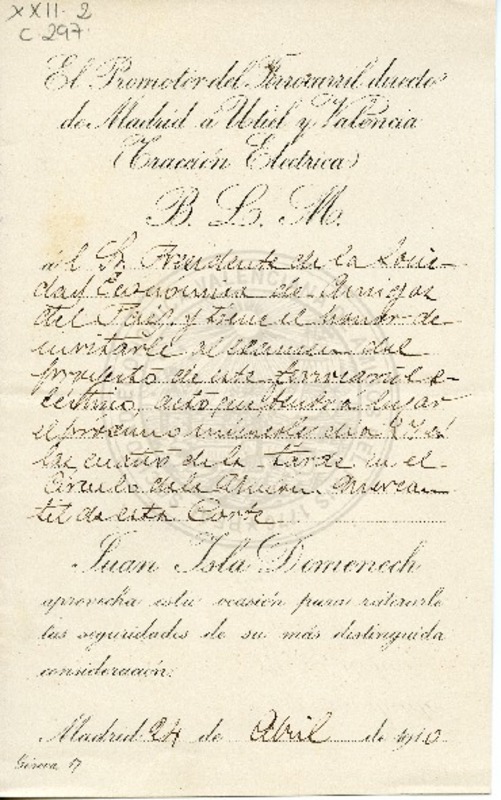 XXII-2
C-297
El Promotor del Ferrocarril directo
de Madrid á Utiel y Valencia
(Tracción Eléctrica)
B. L. M.
al Sr. Presidente de la Socie-
dad Economica de Amigos
del Pais, y tiene el honor de
invitarle al examen del
proyecto de este ferrocarril e-
lectrico, acto que tendrá lugar
el próximo miercoles dia 27 á
las cuatro de la tarde en el
Circulo de la Union Mercan-
til de esta Corte
Juan Isla Domenech
aprovecha esta ocasión para reiterarle
las seguridades de su más distinguida
consideración.
Madrid 24 de Abril de 1910
Génova, 17